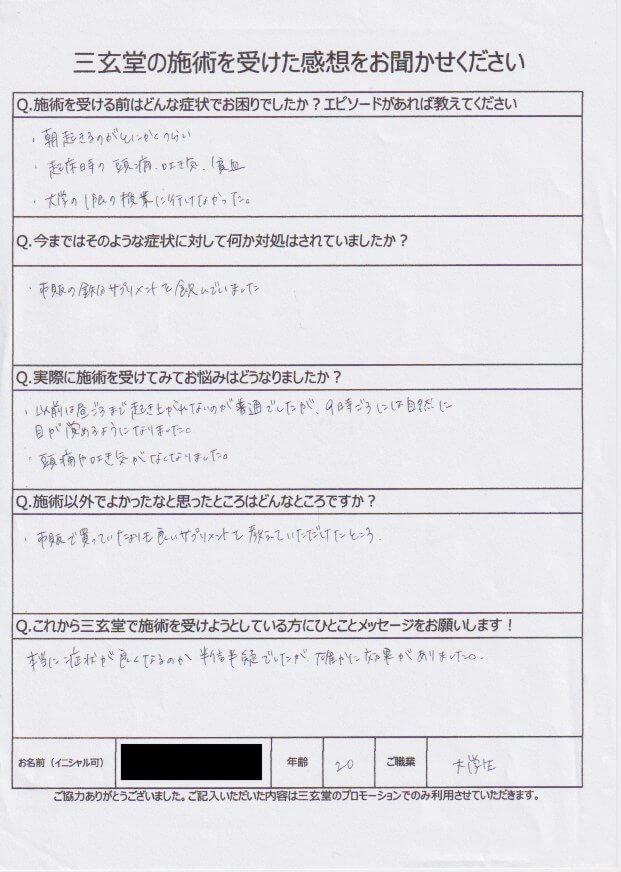 三玄堂の施術を受けた感想をお聞かせください
Q.施術を受ける前はどんな症状でお困りでしたか？エピソードがあれば教えてください
・朝起きるのがとにかくつらい
・起床時の頭痛、吐き気、貧血
・大学の1限の授業に行けなかった。
Q.今まではそのような症状に対して何か対処はされていましたか？
・市販の鉄分サプリメントを飲んでいました
Q.実際に施術を受けてみてお悩みはどうなりましたか？
・以前は昼ごろまで起き上がれないのが普通でしたが、9時ごろには自然に
目が覚めるようになりました。
・頭痛や吐き気がなくなりました。
Q.施術以外でよかったなと思ったところはどんなところですか？
・市販で買っていたよりも良いサプリメントを教えていただけたところ.
Q.これから三玄堂で施術を受けようとしている方にひとことメッセージをお願いします！
本当に症状が良くなるのか半信半疑でしたが、確かに効果がありました。
お名前（イニシャル可） 年齢 20 ご職業 大学生
ご協力ありがとうございました。ご記入いただいた内容は三玄堂のプロモーションでのみ利用させていただきます。